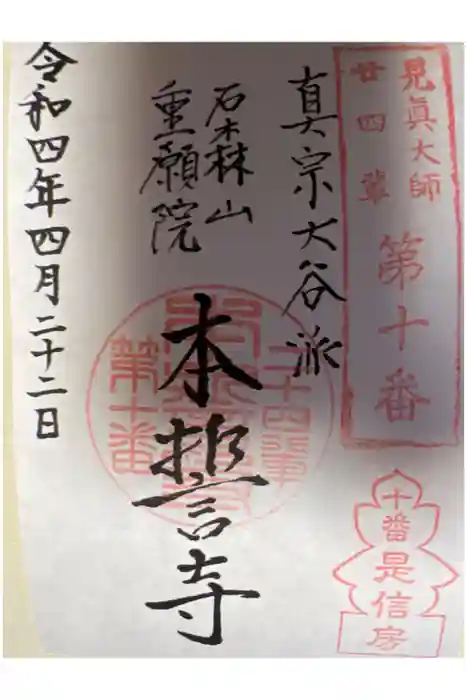 見眞大師
廿四輩
第十番
真宗大谷派
石森山
重願院
本誓寺
令和四年四月二十二日
二十四輩
第十番
十番
是信房